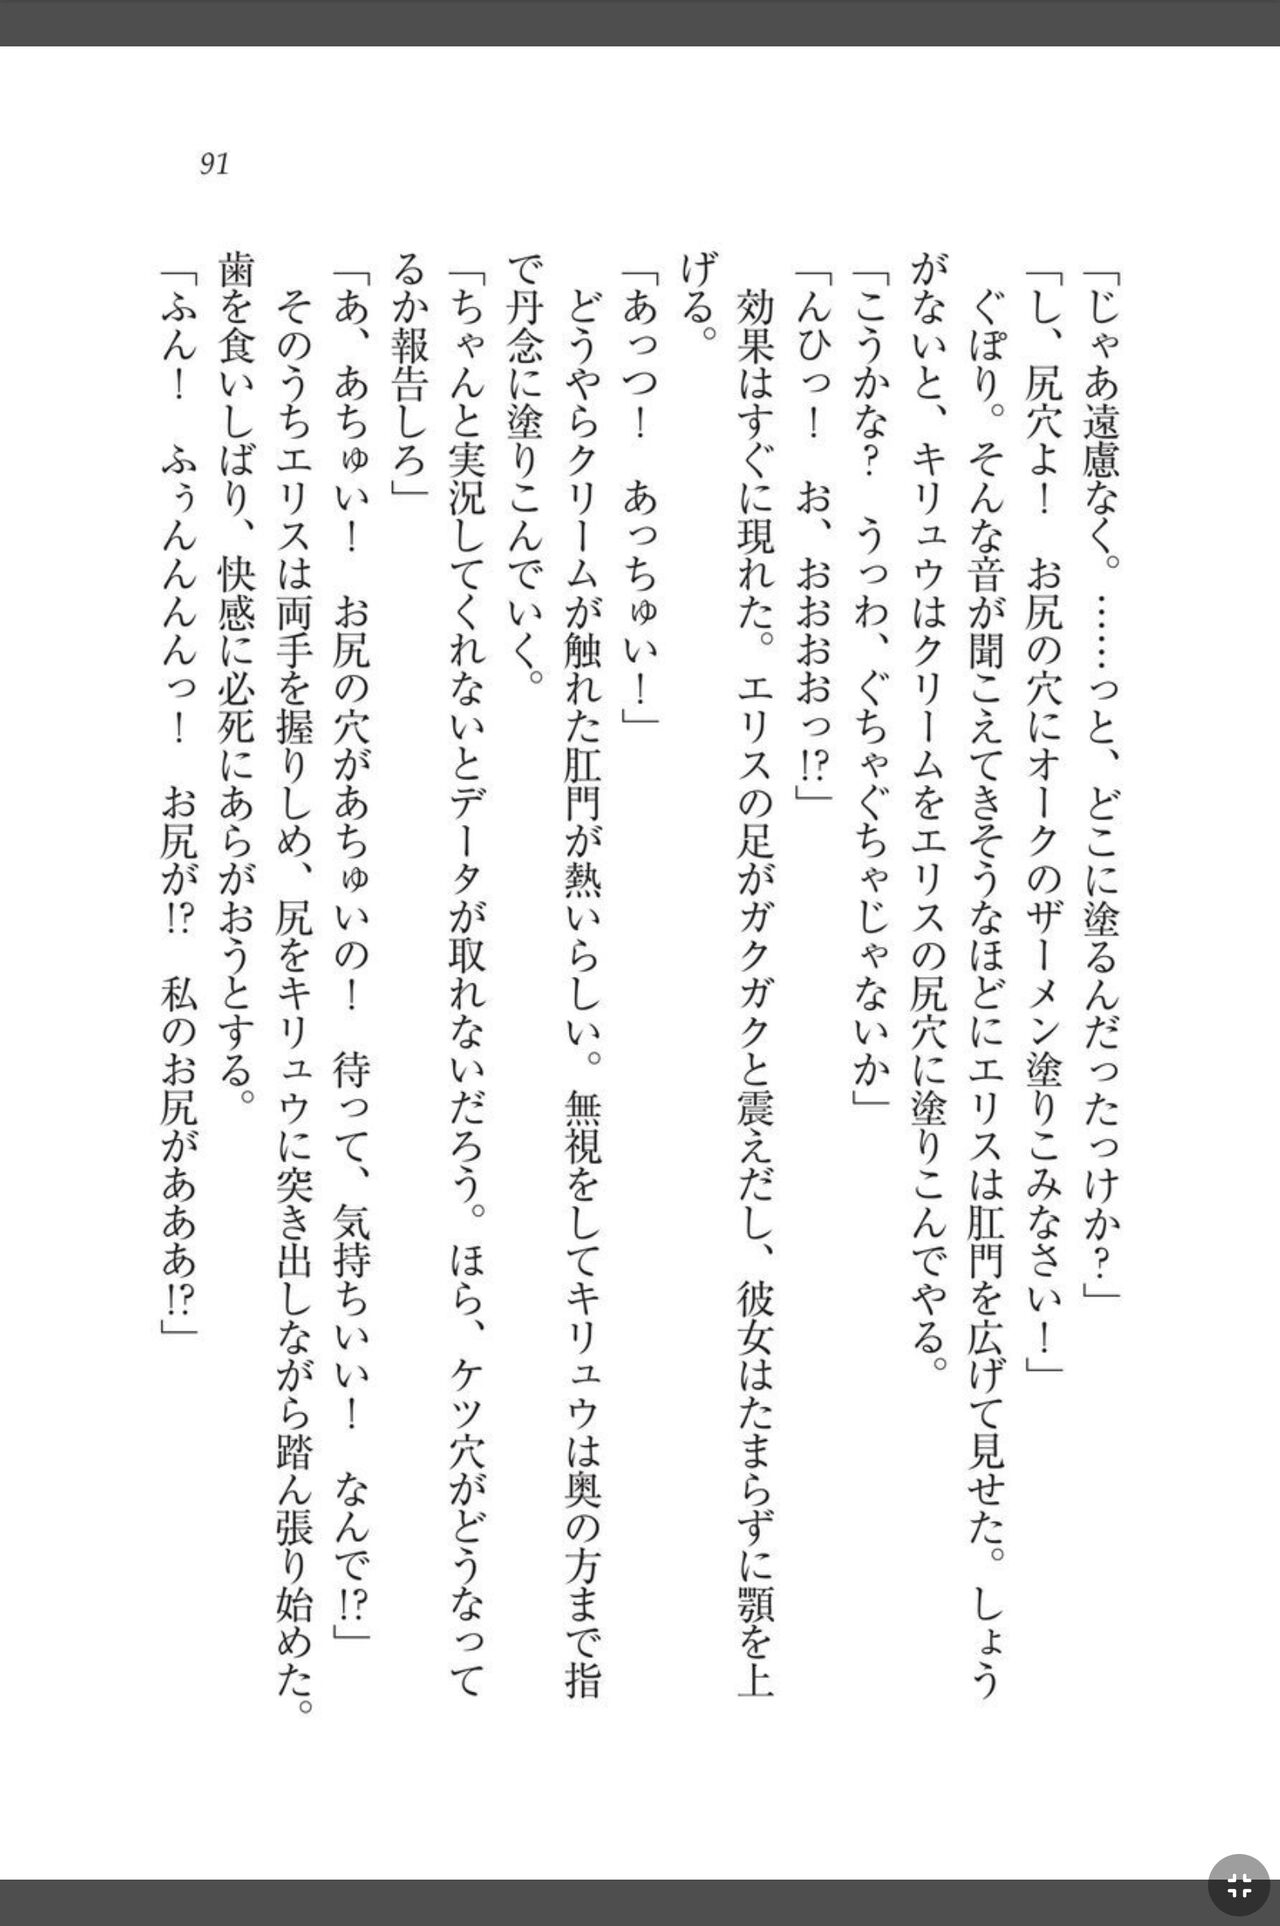 91
「じゃあ遠慮なく。……っと、どこに塗るんだったっけか？」
「し、尻穴よ！　お尻の穴にオークのザーメン塗りこみなさい！」
　ぐぽり。そんな音が聞こえてきそうなほどにエリスは肛門を広げて見せた。しょう
がないと、キリュウはクリームをエリスの尻穴に塗りこんでやる。
「こうかな？　うっわ、ぐちゃぐちゃじゃないか」
「んひっ！　お、おおおおっ!?」
　効果はすぐに現れた。エリスの足がガクガクと震えだし、彼女はたまらずに顎を上
げる。
「あっつ！　あっちゅい！」
　どうやらクリームが触れた肛門が熱いらしい。無視をしてキリュウは奥の方まで指
で丹念に塗りこんでいく。
「ちゃんと実況してくれないとデータが取れないだろう。ほら、ケツ穴がどうなって
るか報告しろ」
「あ、あちゅい！　お尻の穴があちゅいの！　待って、気持ちいい！　なんで!?」
　そのうちエリスは両手を握りしめ、尻をキリュウに突き出しながら踏ん張り始めた。
歯を食いしばり、快感に必死にあらがおうとする。
「ふん！　ふぅんんんんっ！　お尻が!?　私のお尻がああぁ!?」